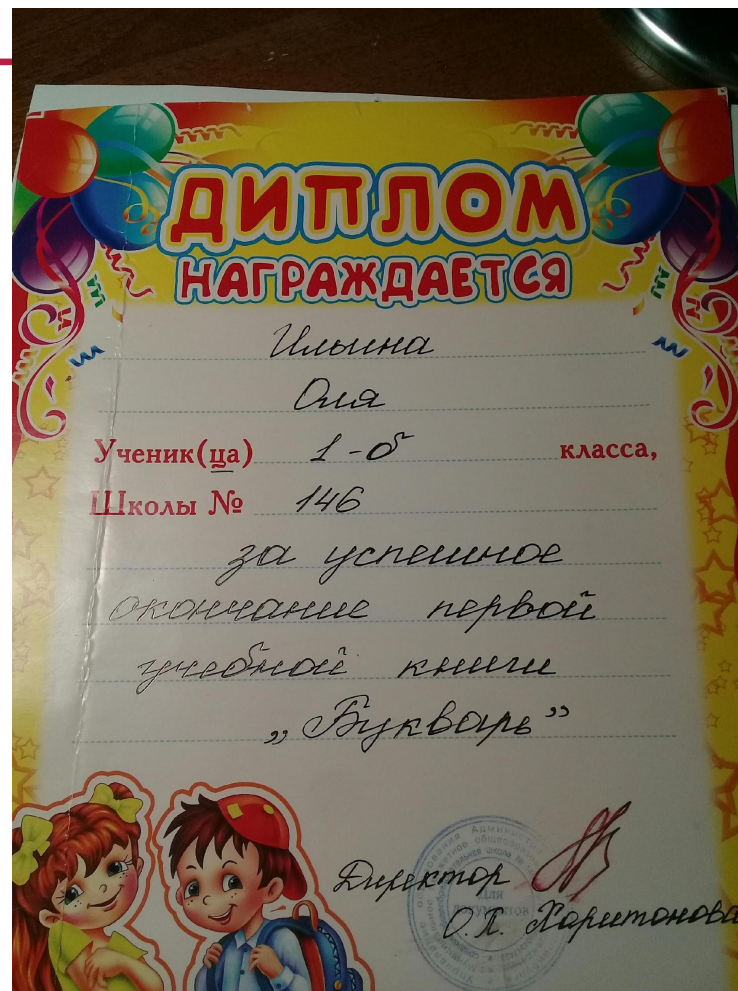 ДИПЛОМ
НАГРАЖДАЕТСЯ
Ильина
Оля
Ученик(ца) 1-б класса,
Школы № 146
за успешное
окончание первой
учебной книги
„Букварь”
Директор
О.П. Харитонова
ДЛЯ
ДОКУМЕНТОВ